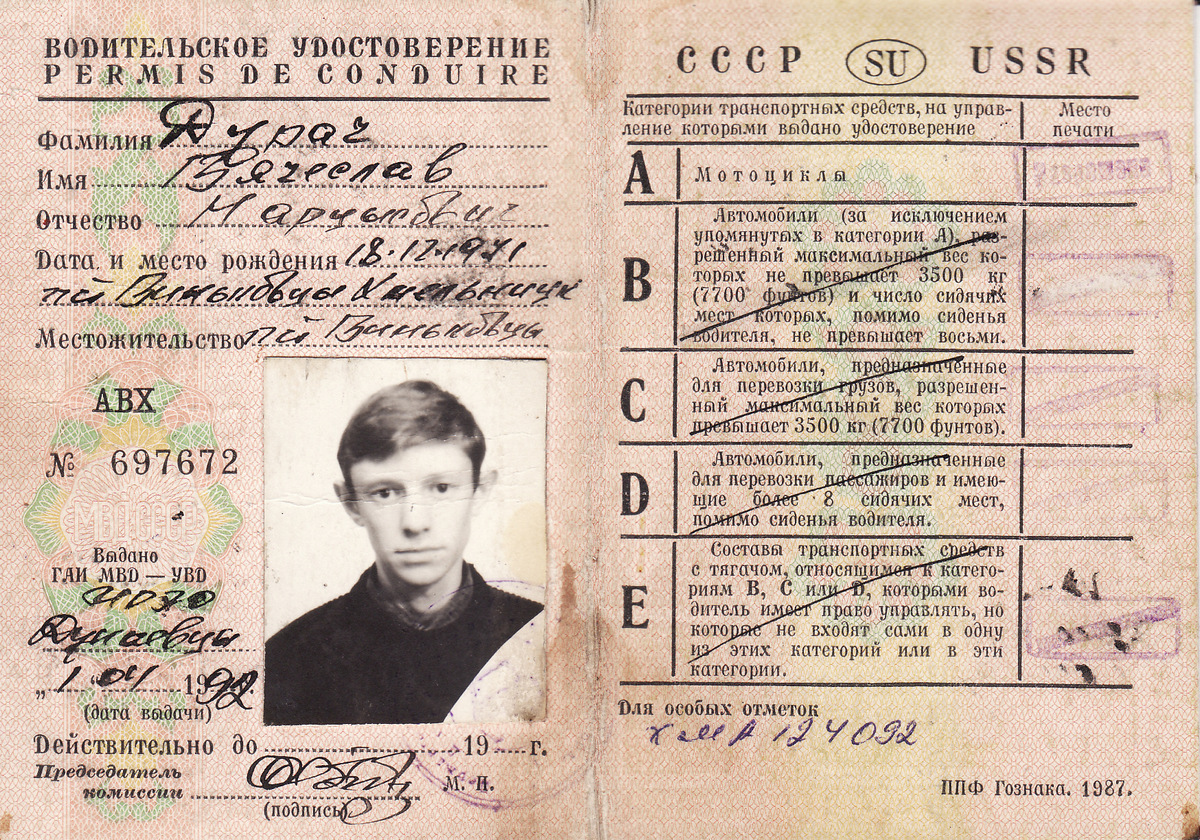 ВОДИТЕЛЬСКОЕ УДОСТОВЕРЕНИЕ
PERMIS DE CONDUIRE
Фамилия Дурач
Имя Вячеслав
Отчество
Дата и место рождения 18.12.1971
пгт Виньковцы
Местожительство пгт Виньковцы
АВХ
№ 697672
Выдано
ГАИ МВД — УВД
Дунаевцы
„1" 04 1992г.
(дата выдачи)
Действительно до 19 г.
Председатель
комиссии
(подпись)
М. П.
СССР SU USSR
Категории транспортных средств, на управ-
ление которыми выдано удостоверение
Место
печати
A Мотоциклы
B Автомобили (за исключением
упомянутых в категории А), раз-
решенный максимальный вес ко-
торых не превышает 3500 кг
(7700 фунтов) и число сидячих
мест которых, помимо сиденья
водителя, не превышает восьми.
C Автомобили, предназначенные
для перевозки грузов, разрешен-
ный максимальный вес которых
превышает 3500 кг (7700 фунтов).
D Автомобили, предназначенные
для перевозки пассажиров и имею-
щие более 8 сидячих мест,
помимо сиденья водителя.
E Составы транспортных средств
с тягачом, относящимся к катего-
риям B, C или D, которыми во-
дитель имеет право управлять, но
которые не входят сами в одну
из этих категорий или в эти
категории.
Для особых отметок
ХМА 124092
ППФ Гознака. 1987.